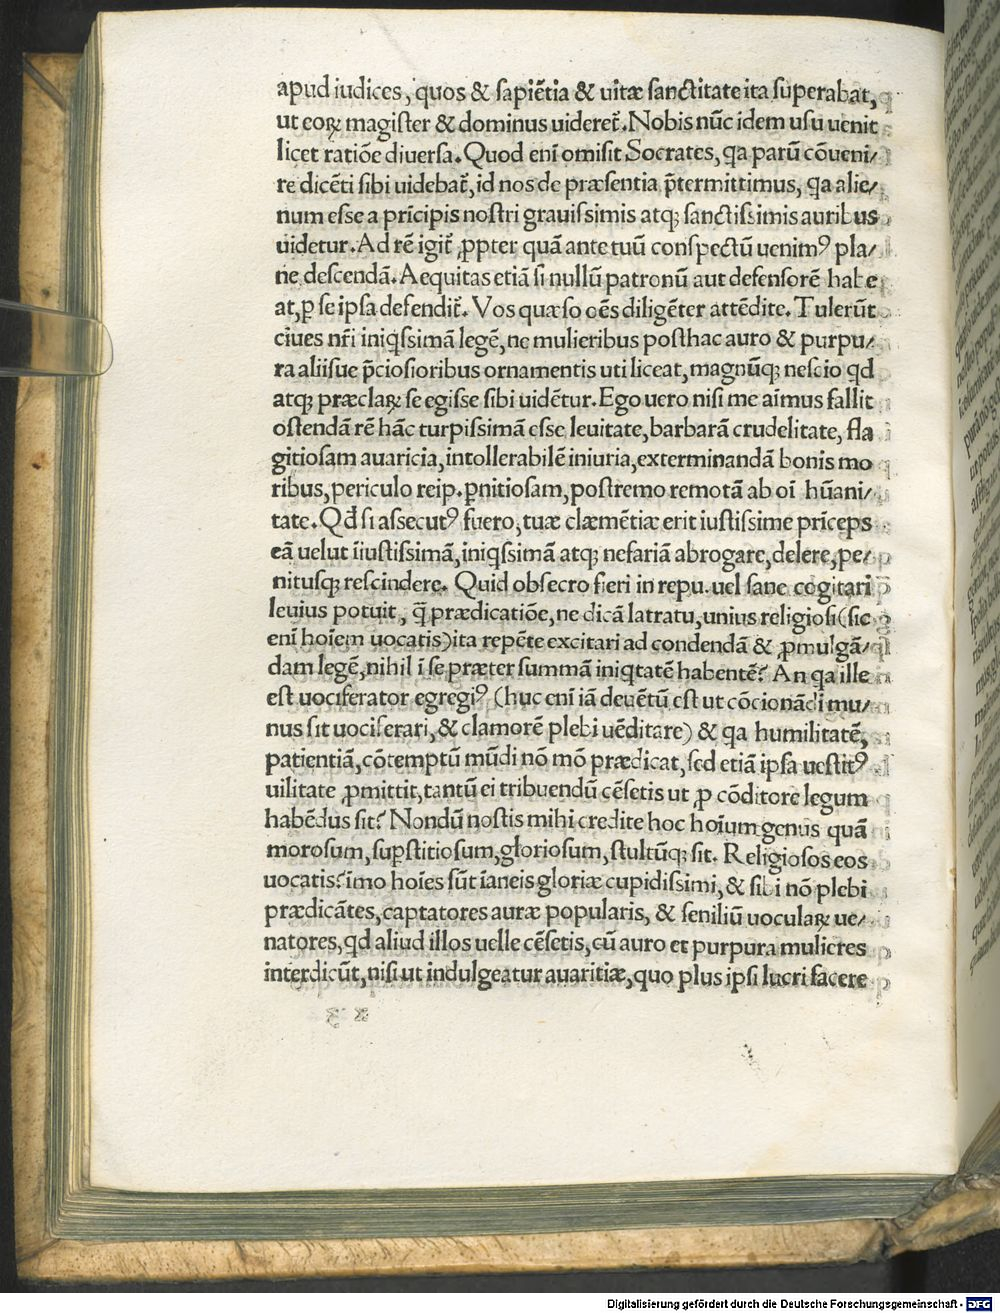 apud iudices, quos & ſapiētia & uitæ ſanctitate ita ſuperabat,
ut eoꝝ magiſter & dominus uideret̃. Nobis nūc idem uſu uenit
licet ratiōe diuerſa. Quod eni omiſit Socrates, qa parū cōueni/
re dicēti ſibi uidebat̃, id nos de præſentia p̃termittimus, qa alie/
num eſſe a prīcipis noſtri grauiſsimis atq; ſanctiſsimis auribus
uidetur. Ad rē igit̃ ꝓpter quā ante tuū conſpectū uenimꝰ pla/
ne deſcendā. Aequitas etiā ſi nullū patronū aut defenſorē habe
at, ꝑ ſe ipſa defendit̃. Vos quæſo oēs diligēter attēdite. Tulerūt
ciues nr̃i iniqſsimā legē, ne mulieribus poſthac auro & purpu/
ra aliiſue p̄cioſioribus ornamentis uti liceat, magnūq; neſcio qd
atq; præclaꝝ ſe egiſſe ſibi uidētur. Ego uero niſi me aīmus fallit
oſtendā rē hāc turpiſsimā eſſe leuitate, barbarā crudelitate, fla
gitioſam auaricia, intollerabilē iniuria, exterminandā bonis mo
ribus, periculo reip. ꝑnitioſam, poſtremo remotā ab oī hūani/
tate. Qd̃ ſi aſſecutꝰ fuero, tuæ clæmētiæ erit iuſtiſsime prīceps
eā uelut īiuſtiſsimā, iniqſsimā atq; nefariā abrogare, delere, pe/
nituſq; reſcindere. Quid obſecro fieri in repu. uel ſane cogitari
leuius potuit, q̄ prædicatiōe, ne dicā latratu, unius religioſi (ſic
enī hoīem uocatis) ita repēte excitari ad condendā & ꝓmulgā/
dam legē, nihil ī ſe præter ſummā iniqtatē habentē? An qa ille
eſt uociferator egregiꝰ (huc enī iā deuētū eſt ut cōcionādi mu/
nus ſit uociferari, & clamorē plebi uēditare) & qa humilitatē,
patientiā, cōtemptū mūdi nō mō prædicat, ſed etiā ipſa ueſtitꝰ
uilitate ꝓmittit, tantū ei tribuendū cēſetis ut ꝓ cōditore legum
habēdus ſit? Nondū noſtis mihi credite hoc hoīum genus quā
moroſum, ſuꝑſtitioſum, glorioſum, ſtultūq; ſit. Religioſos eos
uocatis? īmo hoīes ſūt īaneis gloriæ cupidiſsimi, & ſibi nō plebi
prædicātes, captatores auræ popularis, & ſeniliū uoculaꝝ ue/
natores, qd aliud illos uelle cēſetis, cū auro et purpura mulieres
interdicūt, niſi ut indulgeatur auaritiæ, quo plus ipſi lucri facere
Digitalisierung gefördert durch die Deutsche Forschungsgemeinschaft - DFG